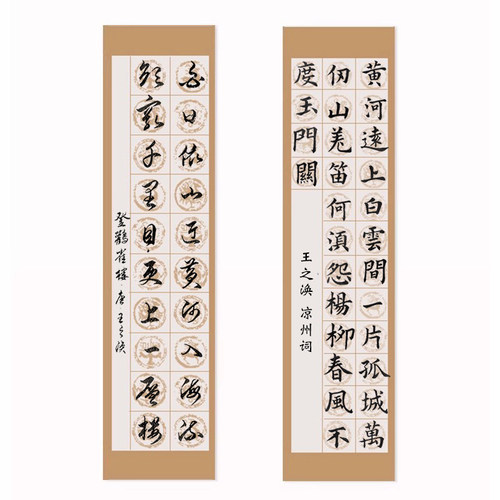 白日依山尽黄河入海流
欲窮千里目更上一層樓
登鸛雀樓·唐 王之涣
黄河遠上白雲間一片孤城萬
仞山羌笛何湏怨楊柳春風不
度玉門關
王之涣 凉州词